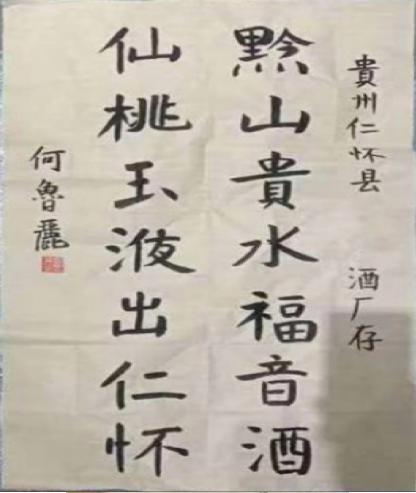 貴州仁怀县 酒厂存
黔山貴水福音酒
仙桃玉液出仁怀
何魯麗